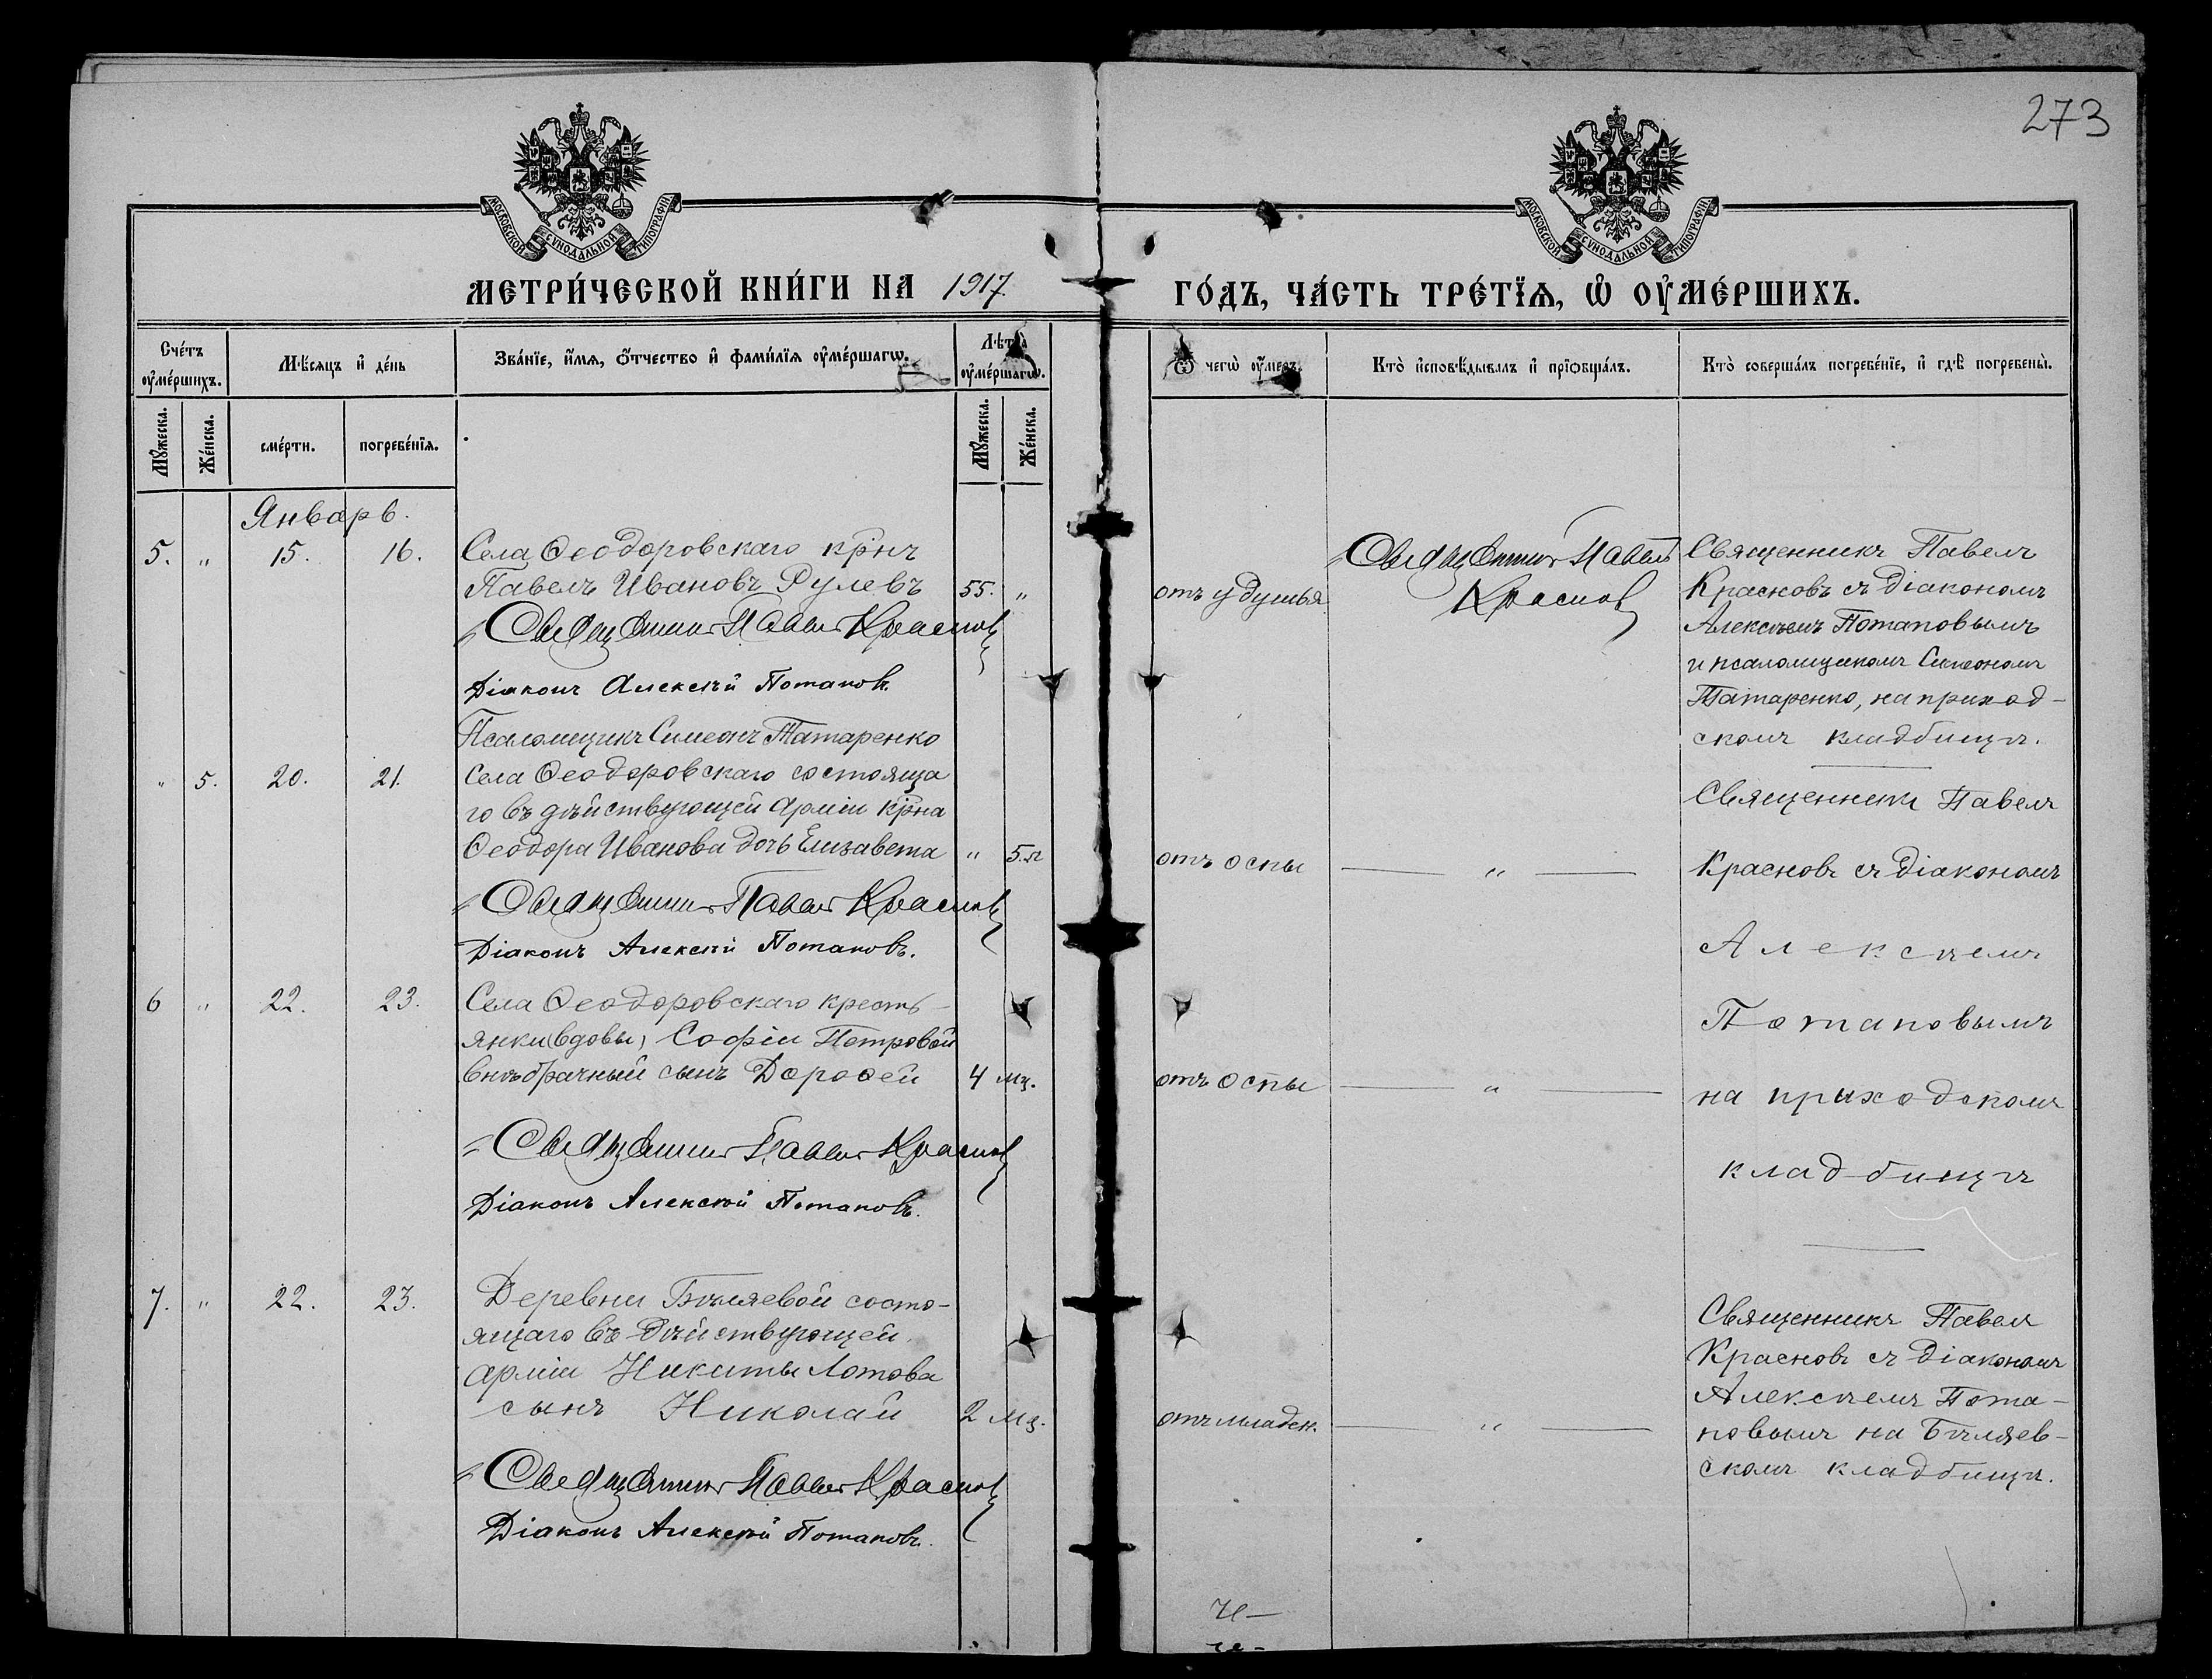 273
МОСКОВСКОЙ СѴНОДАЛЬНОЙ ТИПОГРАФІИ
МОСКОВСКОЙ СѴНОДАЛЬНОЙ ТИПОГРАФІИ
МЕТРИ́ЧЕСКОЙ КНИ́ГИ НА 1917
ГО́ДЪ, ЧА́СТЬ ТРЕ́ТЇѦ, Ѡ ОУ҆МЕ́РШИХЪ.
Сче́тъ оу҆ме́ршихъ.
Мѣ́сѧцъ и҆ де́нь
Зва́нїе, и҆́мѧ, ѻ҆́тчество и҆ фами́лїѧ оу҆ме́ршагѡ.
Лѣ́та оу҆ме́ршагѡ.
Ѿ чегѡ̀ оу҆́меръ.
Кто̀ и҆сповѣ́дывалъ и҆ прїѻбща́лъ.
Кто̀ соверша́лъ погребе́нїе, и҆ гдѣ̀ погребены̀.
Мꙋ́жеска.
Же́нска.
сме́рти.
погребе́нїѧ.
Мꙋ́жеска.
Же́нска.
Январь.
5. " 15. 16. Села Ѳеодоровскаго кр̃нъ
Павелъ Ивановъ Рулевъ 55. "
Священникъ Павелъ Красновъ
Діаконъ Алексѣй Потаповъ.
Псаломщикъ Симеонъ Татаренко
отъ удушья
Священникъ Павелъ
Красновъ
Священникъ Павелъ
Красновъ съ діакономъ
Алексѣемъ Потаповымъ
и псаломщикомъ Симеономъ
Татаренко, на приход-
скомъ кладбищѣ.
" 5. 20. 21. Села Ѳеодоровскаго состояща
го въ дѣйствующей арміи кр̃на
Ѳеодора Иванова дочь Елизавета " 5.л
Священникъ Павелъ Красновъ
Діаконъ Алексѣй Потаповъ.
отъ оспы "
Священникъ Павелъ
Красновъ съ діакономъ
Алексѣемъ
Потаповымъ
на приходскомъ
кладбищѣ
6 " 22. 23. Села Ѳеодоровскаго кресть-
янки (вдовы) Софіи Петровой
внѣбрачный сынъ Дороѳей 4 мц.
Священникъ Павелъ Красновъ
Діаконъ Алексѣй Потаповъ.
отъ оспы "
7. " 22. 23. Деревни Бѣляевой состо-
ящаго въ дѣйствующей
арміи Никиты Лотова
сынъ Николай 2 мц.
Священникъ Павелъ Красновъ
Діаконъ Алексѣй Потаповъ.
отъ младен. "
Священникъ Павелъ
Красновъ съ діакономъ
Алексѣемъ Пота-
повымъ на Бѣляев-
скомъ кладбищѣ.